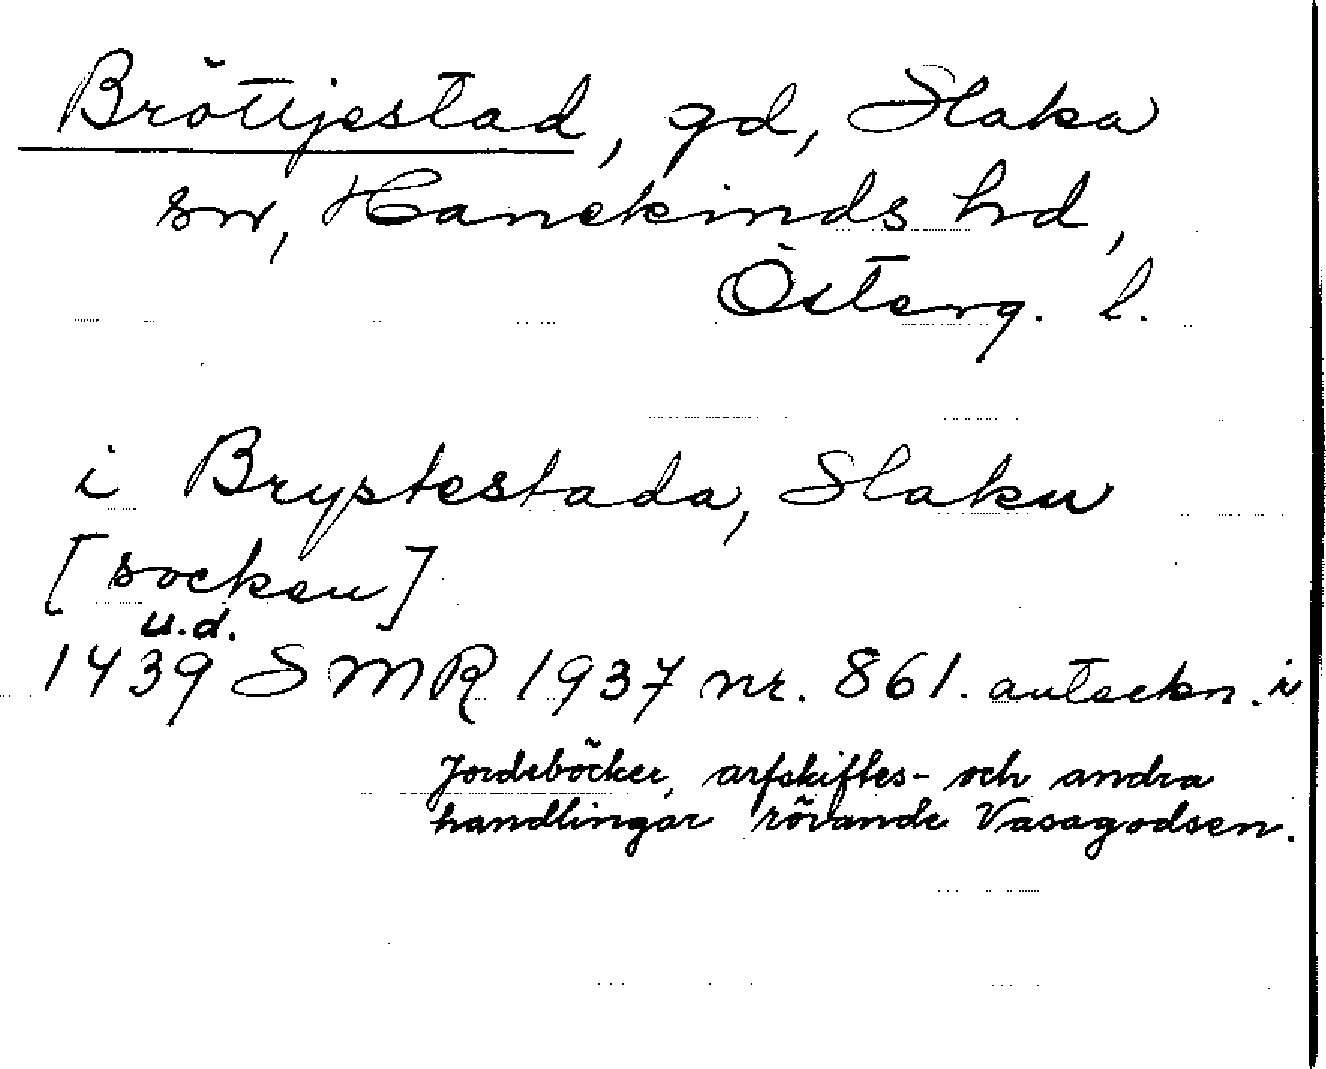 Bröttjestad, gd, Slaka
sn, Hanekinds hd,
Österg. l.
i Bryptestada, Slaku
[socken]
u.d.
1439 SMR 1937 nr. 861. anteckn. i
Jordeböcker, arfskiftes- och andra
handlingar rörande Vasagodsen.